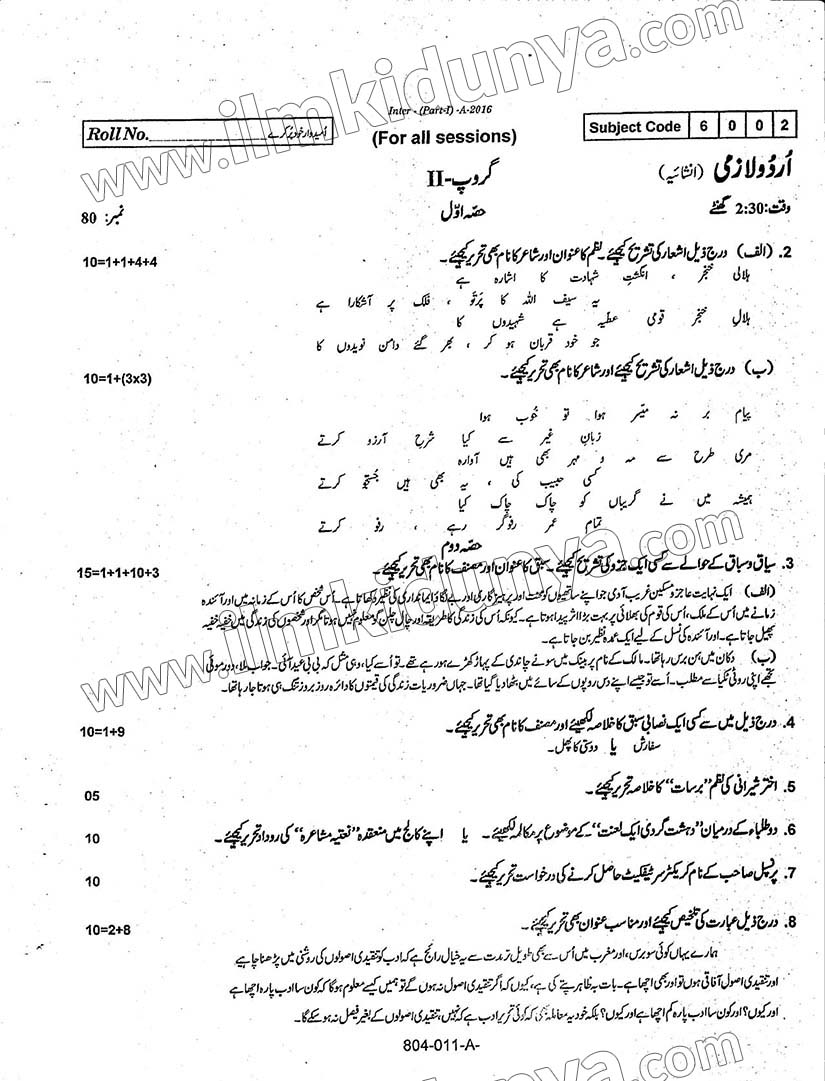 www.ilmkidunya.com
Inter - (Part-I) -A-2016
Roll No. امیدوار خود پُر کرے
(For all sessions)
Subject Code 6 0 0 2
اُردو لازمی (انشائیہ)
گروپ-II
وقت: 2:30 گھنٹے
حصّہ اوّل
نمبر: 80
2. (الف) درج ذیل اشعار کی تشریح کیجئے۔ نظم کا عنوان اور شاعر کا نام بھی تحریر کیجئے۔ 10=1+1+4+4
ہلالی خنجر ، انگشتِ شہادت کا اشارہ ہے
یہ سیف اللہ کا پَرتَو ، فلک پر آشکارا ہے
ہلالِ خنجر قومی عطیہ ہے شہیدوں کا
جو خود قربان ہو کر ، بھر گئے دامن نویدوں کا
(ب) درج ذیل اشعار کی تشریح کیجئے اور شاعر کا نام بھی تحریر کیجئے۔ 10=1+(3x3)
پیام بر نہ میّسر ہوا تو خُوب ہوا
زبانِ غیر سے کیا شرحِ آرزو کرتے
مری طرح سے مہ و مہر بھی ہیں آوارہ
کسی حبیب کی ، یہ بھی ہیں جُستجو کرتے
ہمیشہ میں نے گریباں کو چاک چاک کیا
تمام عمر رفوگر رہے ، رفو کرتے
www.ilmkidunya.com
حصّہ دوم
3. سیاق و سباق کے حوالے سے کسی ایک جزو کی تشریح کیجئے۔ سبق کا عنوان اور مصنف کا نام بھی تحریر کیجئے۔ 15=1+1+10+3
(الف) ایک نہایت عاجز و مسکین غریب آدمی جو اپنے ساتھیوں کو محنت اور پرہیزگاری اور بے لگاؤ ایمانداری کی نظیر دکھاتا ہے۔ اُس شخص کا اُس کے زمانہ میں اور آئندہ
زمانے میں اُس کے ملک، اُس کی قوم کی بھلائی پر بہت بڑا اثر پیدا ہوتا ہے۔ کیونکہ اُس کی زندگی کا طریقہ اور چال چلن گو معلوم نہیں ہوتا مگر اور شخصوں کی زندگی میں خفیہ خفیہ
پھیل جاتا ہے۔ اور آئندہ کی نسل کے لیے ایک عمدہ نظیر بن جاتا ہے۔
(ب) دکان میں ہُن برس رہا تھا۔ مالک کے نام پر بینک میں سونے چاندی کے پہاڑ کھڑے ہو رہے تھے۔ تو اُسے کیا، وہی مثل کہ بی بی عید آئی۔ جواب ملا، دور موئی
تجھے اپنی روٹی ٹکیا سے مطلب۔ اُسے تو جیسے اپنے دس روپوں کے سائے میں بٹھا دیا گیا تھا۔ جہاں ضروریات زندگی کی قیمتوں کا دائرہ روز بروز تنگ ہی ہوتا جا رہا تھا۔
4. درج ذیل میں سے کسی ایک نصابی سبق کا خلاصہ لکھیئے اور مصنف کا نام بھی تحریر کیجئے۔ 10=1+9
سفارش یا دوستی کا پھل۔
5. اختر شیرانی کی نظم "برسات" کا خلاصہ تحریر کیجئے۔ 05
6. دو طلباء کے درمیان "دہشت گردی ایک لعنت" کے موضوع پر مکالمہ لکھیئے۔ یا اپنے کالج میں منعقدہ "نعتیہ مشاعرہ" کی روداد تحریر کیجئے۔ 10
7. پرنسپل صاحب کے نام کریکٹر سرٹیفکیٹ حاصل کرنے کی درخواست تحریر کیجئے۔ 10
8. درج ذیل عبارت کی تلخیص کیجئے اور مناسب عنوان بھی تحریر کیجئے۔ 10=2+8
ہمارے یہاں کوئی سو برس، اور مغرب میں اُس سے بھی طویل تر مدت سے یہ خیال رائج ہے کہ ادب کو تنقیدی اصولوں کی روشنی میں پڑھنا چاہیے
اور تنقیدی اصول آفاقی ہوں تو اور بھی اچھا ہے۔ بات بہ ظاہر پتے کی ہے، کیوں کہ اگر تنقیدی اصول نہ ہوں گے تو ہمیں کیسے معلوم ہوگا کہ کون سا ادب پارہ اچھا ہے
اور کیوں؟ اور کون سا ادب پارہ کم اچھا ہے اور کیوں؟ بلکہ خود یہ معاملہ کہ کوئی تحریر ادب ہے کہ نہیں، تنقیدی اصولوں کے بغیر فیصل نہ ہو سکے گا۔
804-011-A-
www.ilmkidunya.com